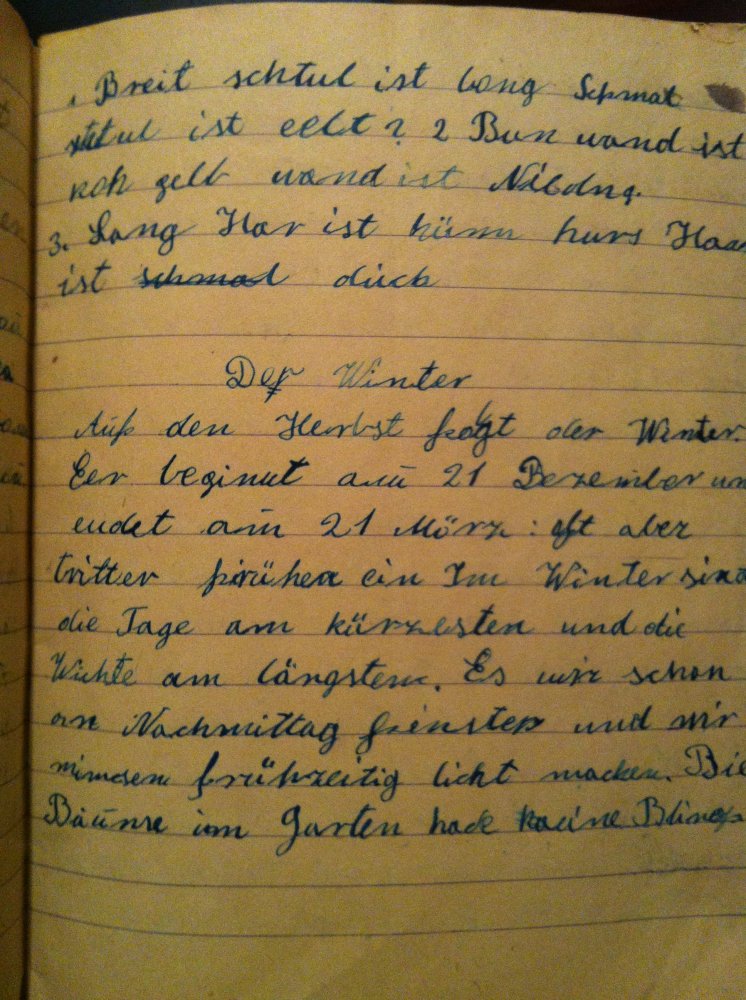 1. Breit schtul ist lang Schmal
stul ist eelt? 2 Bun wand ist
roh gelb wand ist
3. Lang Har ist künn kurs Haar
ist schmal dück
Der Winter
Auß den Herbst folgt der Winter.
Eer beginnt am 21 Dezember un
endet am 21 März: oft aber
tritter früher ein Im Winter sind
die Tage am kürzesten und die
Nichte am längsten. Es wir schon
an Nachmittag finster und wir
mimsen frühzeitig licht machen. Die
Bäume im Garten habe kaeine